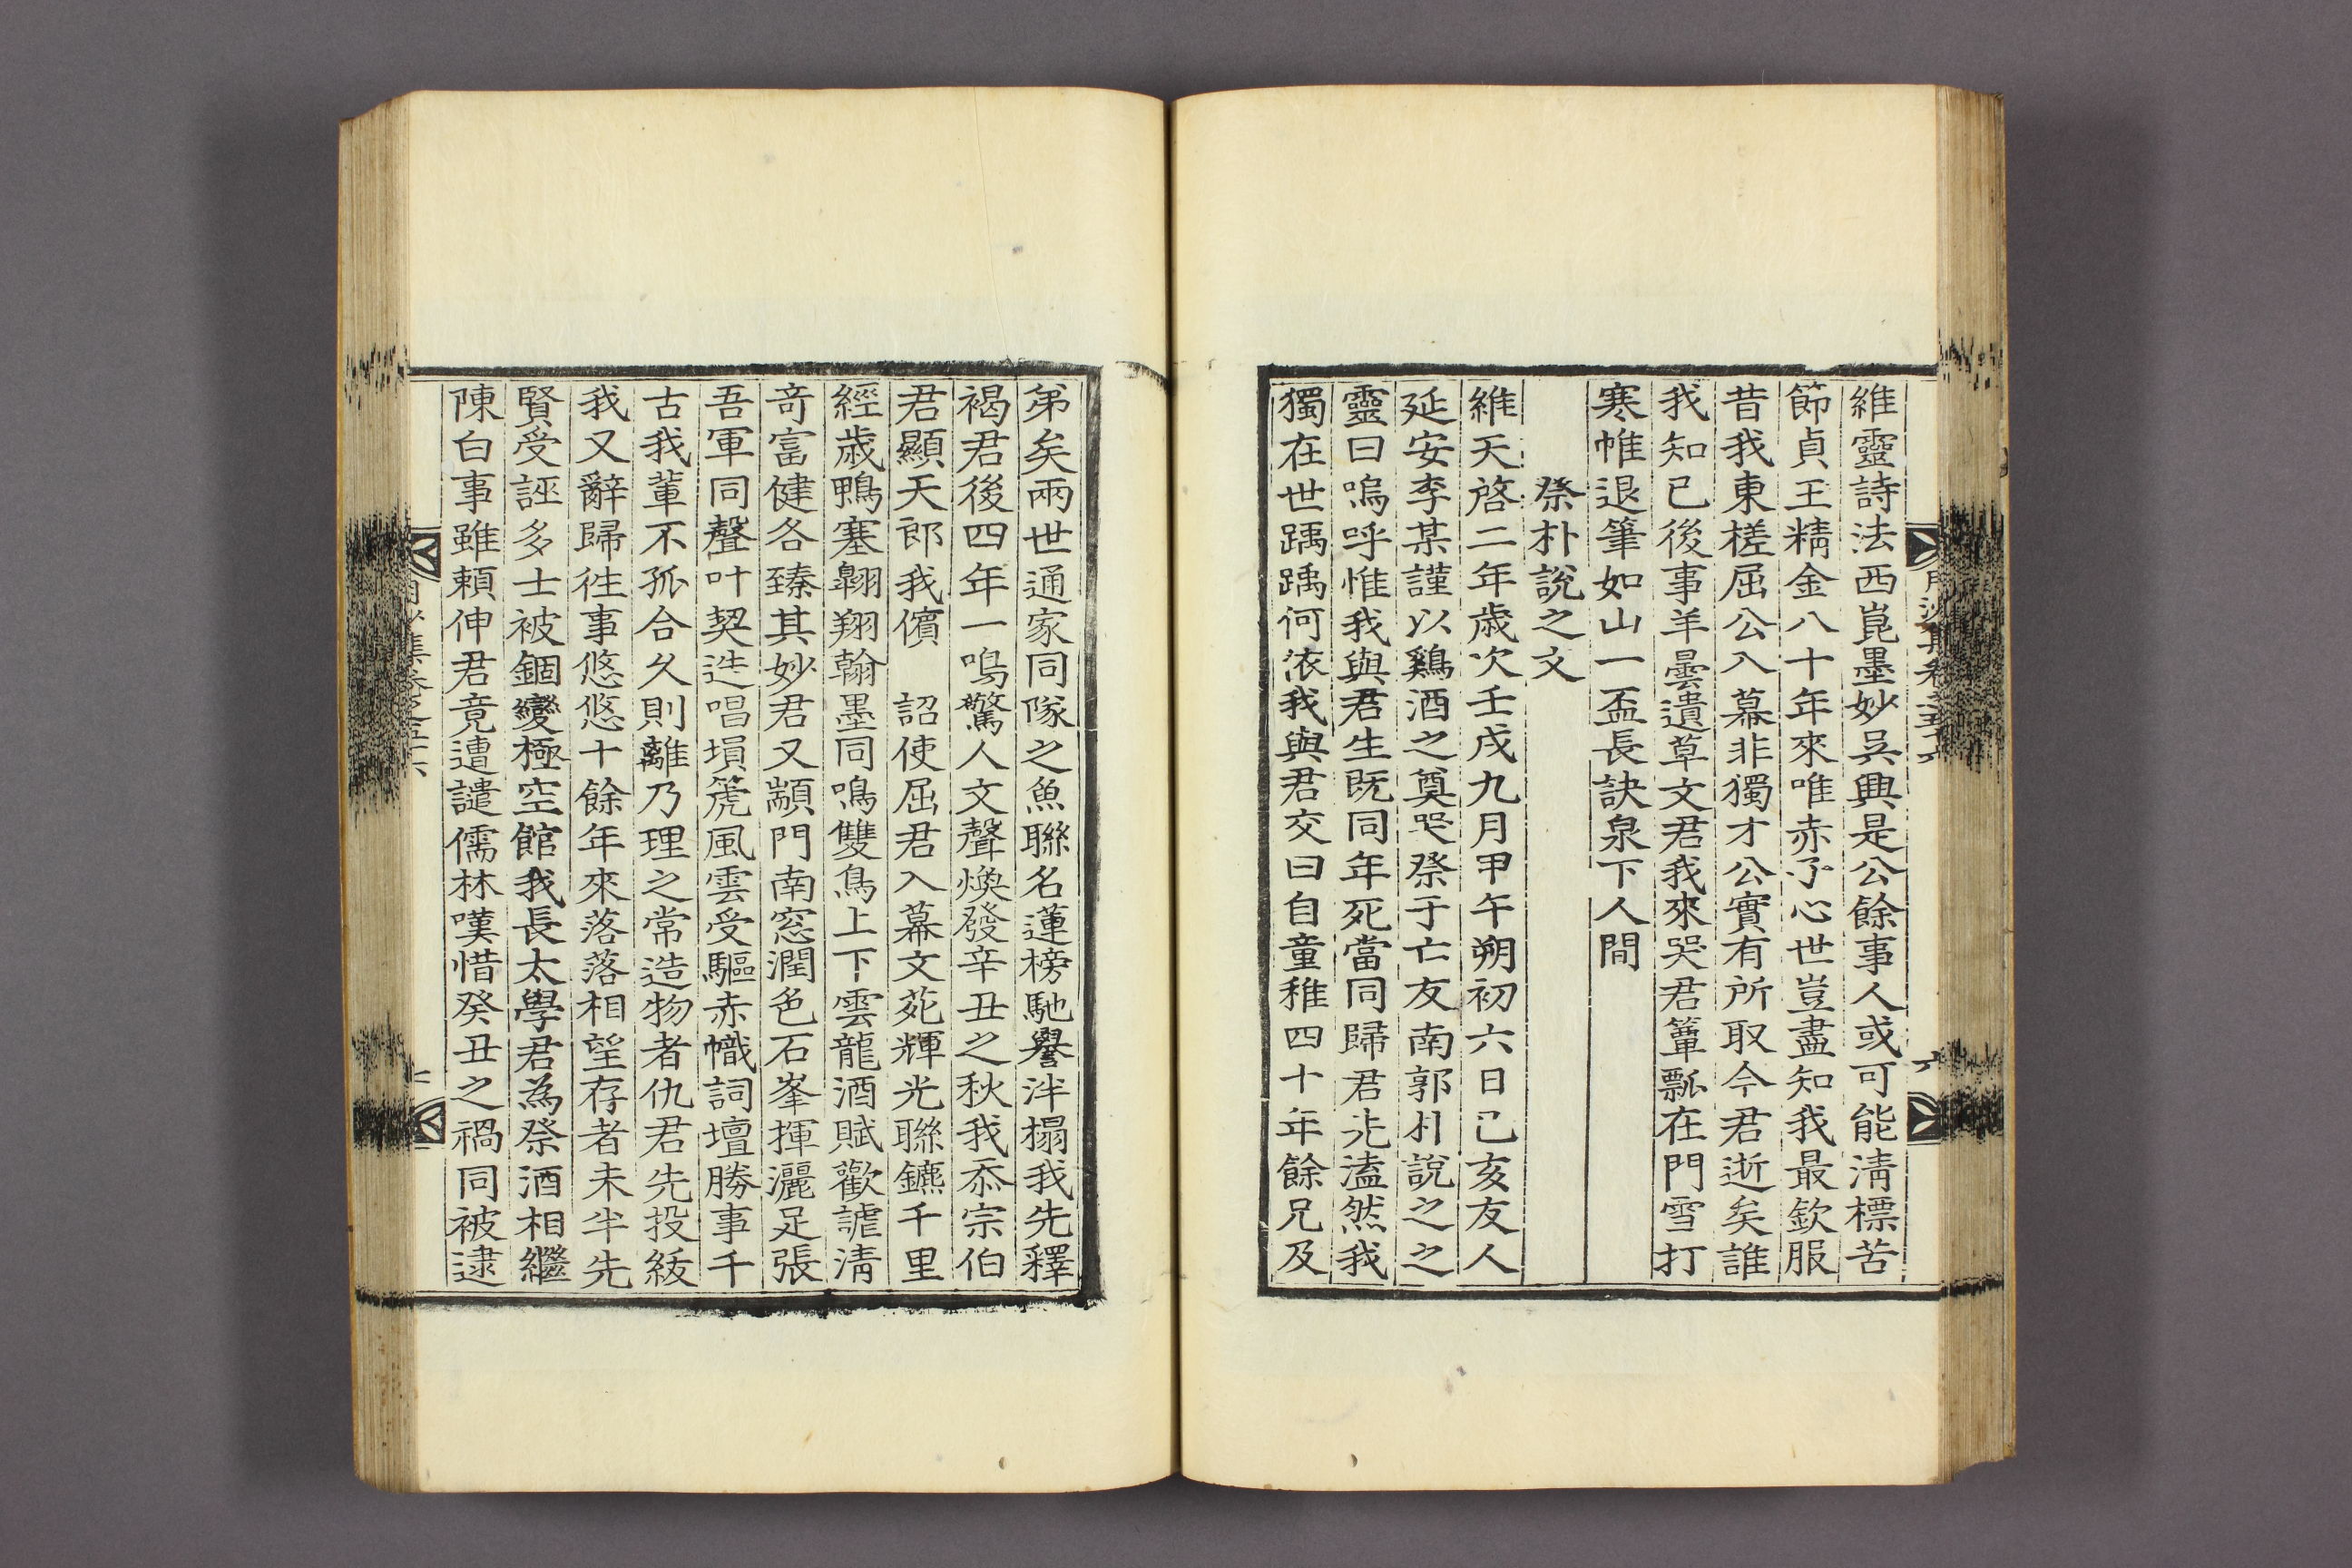 維靈詩法西崑墨妙吳興是公餘事人或可能淸標苦
節貞玉精金八十年來唯赤子心世豈盡知我最欽服
昔我東槎屈公入幕非獨才公實有所取今君逝矣誰
我知已後事羊曇遺草文君我來哭君簞瓢在門雪打
寒帷退筆如山一盃長訣泉下人間
祭朴說之文
維天啓二年歲次壬戌九月甲午朔初六日己亥友人
延安李某謹以鷄酒之奠哭祭于亡友南郭朴說之之
靈曰嗚呼惟我與君生旣同年死當同歸君先溘然我
獨在世踽踽何依我與君交曰自童稚四十年餘兄及
弟矣兩世通家同隊之魚聯名蓮榜馳譽泮搨我先釋
褐君後四年一鳴驚人文聲煥發辛丑之秋我忝宗伯
君顯天郎我儐 詔使屈君入幕文苑輝光聯鑣千里
經歲鴨塞翺翔翰墨同鳴雙鳥上下雲龍酒賦歡謔淸
奇富健各臻其妙君又顓門南窓潤色石峯揮灑足張
吾軍同聲叶契迭唱塤箎風雲受驅赤幟詞壇勝事千
古我輩不孤合久則離乃理之常造物者仇君先投紱
我又辭歸徃事悠悠十餘年來落落相望存者未半先
賢受誣多士被錮變極空館我長太學君為祭酒相繼
陳白事雖頼伸君竟遭譴儒林嘆惜癸丑之禍同被逮